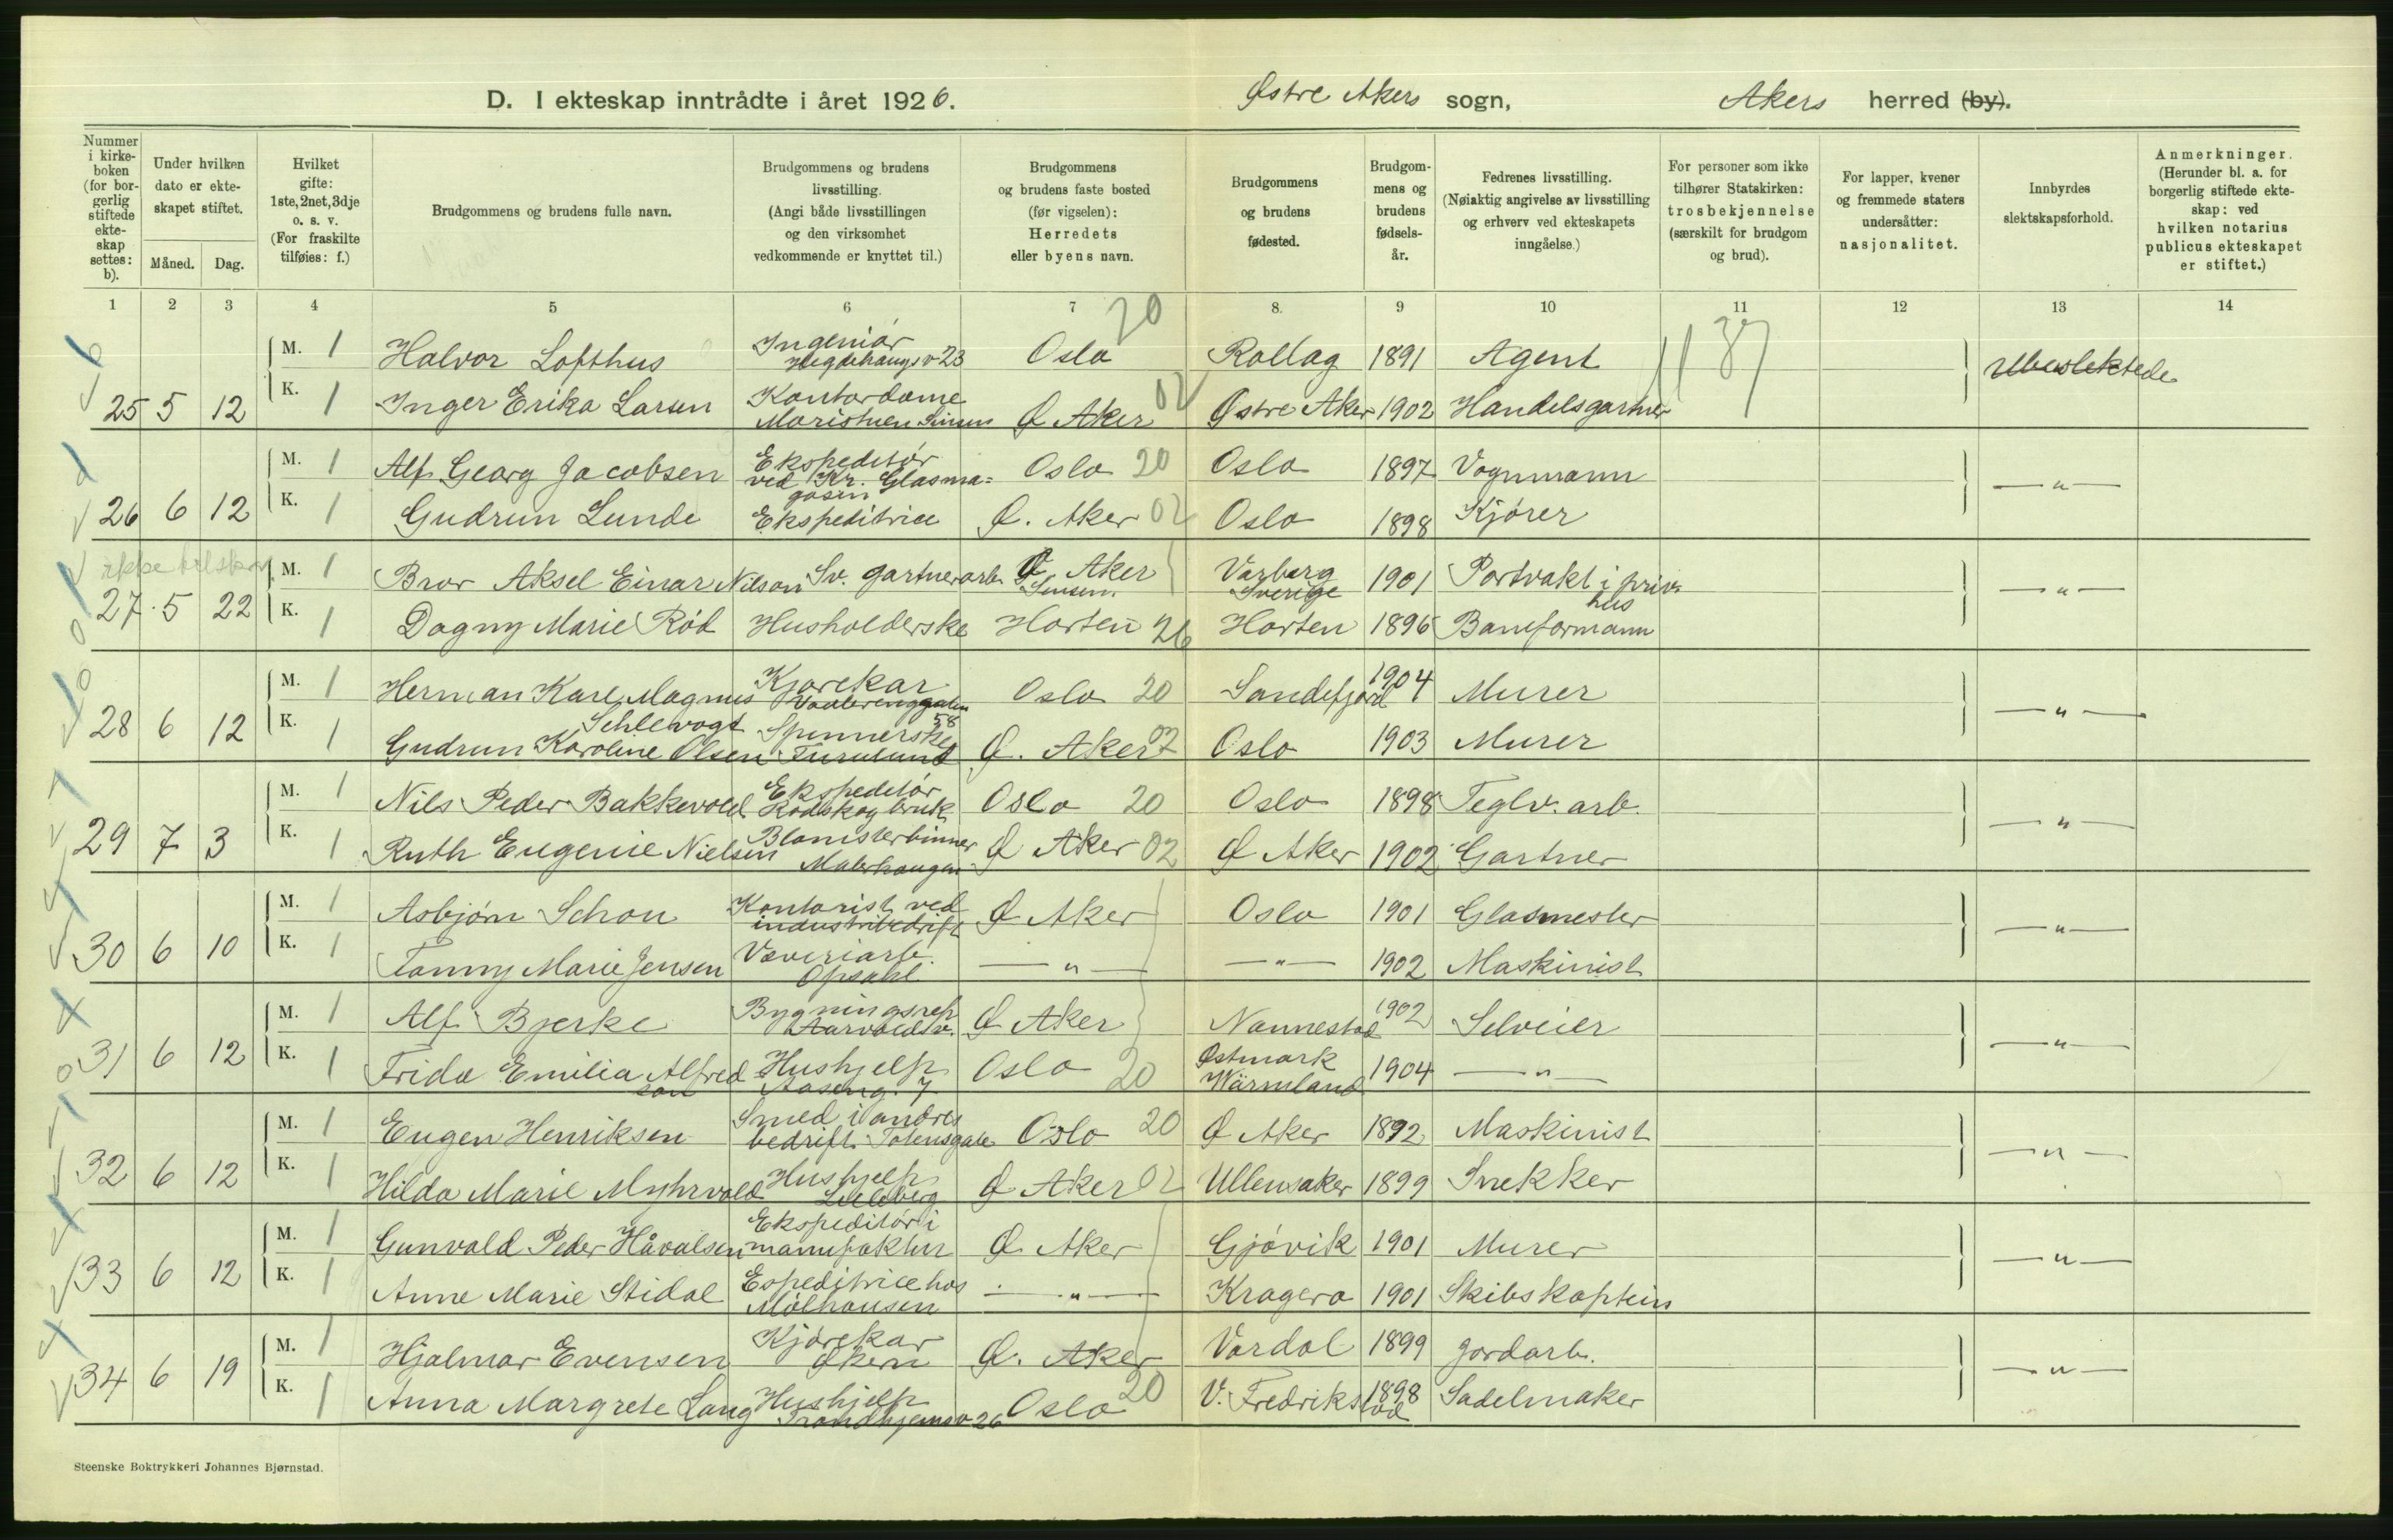 D. I ekteskap inntrådte i året 1926. Østre Akers sogn, Akers herred (by).
Nummer i kirkeboken (for borgerlig stiftede ekteskap settes: b).
Under hvilken dato er ekteskapet stiftet.
Måned. Dag.
Hvilket gifte: 1ste, 2net, 3dje o. s. v. (For fraskilte tilføies: f.)
Brudgommens og brudens fulle navn.
Brudgommens og brudens livsstilling. (Angi både livsstillingen og den virksomhet vedkommende er knyttet til.)
Brudgommens og brudens faste bosted (før vigselen): Herredets eller byens navn.
Brudgommens og brudens fødested.
Brudgommens og brudens fødselsår.
Fedrenes livsstilling. (Nøiaktig angivelse av livsstilling og erhverv ved ekteskapets inngåelse.)
For personer som ikke tilhører Statskirken: trosbekjennelse (særskilt for brudgom og brud).
For lapper, kvener og fremmede staters undersåtter: nasjonalitet.
Innbyrdes slektskapsforhold.
Anmerkninger. (Herunder bl. a. for borgerlig stiftede ekteskap: ved hvilken notarius publicus ekteskapet er stiftet.)
1 2 3 4 5 6 7 8. 9 10 11 12 13 14
M. 1 Halvor Lofthus Ingeniør Hegdehaugsv 23 Oslo 20 Rollag 1891 Agent Ubeslektede
25 5 12 K. 1 Inger Erika Larsen Kontordame Maristuen Sinsen Ø Aker 02 Østre Aker 1902 Handelsgartner
M. 1 Alf Georg Jacobsen Ekspeditør ved Kr. Glasmagasin Oslo 20 Oslo 1897 Vognmann — " —
26 6 12 K. 1 Gudrun Lunde Ekspeditrice Ø. Aker 02 Oslo 1898 Kjører
M. 1 Bror Aksel Einar Nilson Sv. gartnerarb. Ø Aker Sinsen. Varberg Sverige 1901 Portvakt i priv. hus — " —
27 5 22 K. 1 Dagny Marie Rød Husholderske Horten 26 Horten 1896 Baneformann
M. 1 Herman Karl Magnus Schlevogt Kjørekar Vaalerenggaten 58 Oslo 20 Sandefjord 1904 Murer — " —
28 6 12 K. 1 Gudrun Karoline Olsen Spinnerske Furulund Ø. Aker 02 Oslo 1903 Murer
M. 1 Nils Peder Bakkevold Ekspeditør Rodskog bruk Oslo 20 Oslo 1898 Teglv. arb. — " —
29 7 3 K. 1 Ruth Eugenie Nielsen Blomsterbinner Malerhaugen Ø Aker 02 Ø Aker 1902 Gartner
M. 1 Asbjørn Schou Kontorist ved industribedrift Ø Aker Oslo 1901 Glasmester — " —
30 6 10 K. 1 Fanny Marie Jensen Væveriarb. Opsahl — " — — " — 1902 Maskinist
M. 1 Alf Bjerke Bygningsrep Aarvoldsv. Ø Aker Nannestad 1902 Selveier — " —
31 6 12 K. 1 Frida Emilia Alfredson Hushjelp Aaseng. 7 Oslo 20 Østmark Wärmland 1904 — " —
M. 1 Eugen Henriksen Smed i andres bedrift Totensgate Oslo 20 Ø Aker 1892 Maskinist — " —
32 6 12 K. 1 Hilda Marie Myhrvold Hushjelp Lilleberg Ø Aker 02 Ullensaker 1899 Snekker
M. 1 Gunvald Peder Håvalsen Ekspeditør i manufaktur Ø. Aker Gjøvik 1901 Murer — " —
33 6 12 K. 1 Anne Marie Stidal Espeditrice hos Mølhausen — " — Kragerø 1901 Skibskaptein
M. 1 Hjalmar Evensen Kjørekar Økern Ø. Aker Vardal 1899 Jordarb. — " —
34 6 19 K. 1 Anna Margrete Lang Hushjelp Trondhjemsv 26 Oslo 20 V. Fredrikstad 1898 Sadelmaker
Steenske Boktrykkeri Johannes Bjørnstad.